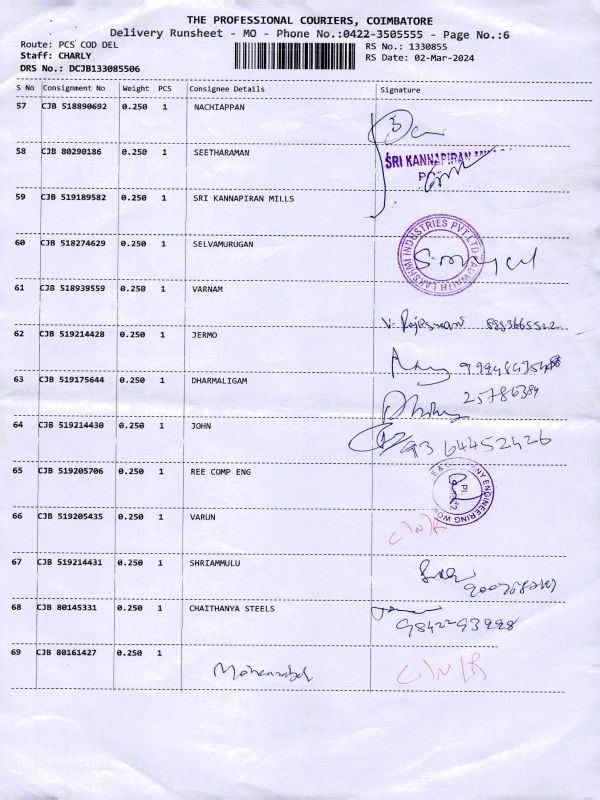 THE PROFESSIONAL COURIERS, COIMBATORE
Delivery Runsheet - MO - Phone No.:0422-3505555 - Page No.:6
Route: PCS COD DEL RS No.: 1330855
Staff: CHARLY RS Date: 02-Mar-2024
DRS No.: DCJB133085506
S No Consignment No Weight PCS Consignee Details Signature
57 CJB 518890692 0.250 1 NACHIAPPAN
58 CJB 80290186 0.250 1 SEETHARAMAN
SRI KANNAPIRAN
59 CJB 519189582 0.250 1 SRI KANNAPIRAN MILLS
60 CJB 518274629 0.250 1 SELVAMURUGAN
LAKSHMI INDUSTRIES PVT.LTD
61 CJB 518939559 0.250 1 VARNAM
62 CJB 519214428 0.250 1 JERMO
63 CJB 519175644 0.250 1 DHARMALIGAM
25786384
64 CJB 519214430 0.250 1 JOHN
93 64452426
65 CJB 519205706 0.250 1 REE COMP ENG
ENGINEERING
66 CJB 519205435 0.250 1 VARUN
C/N/R
67 CJB 519214431 0.250 1 SHRIAMMULU
68 CJB 80145331 0.250 1 CHAITHANYA STEELS
9842293998
69 CJB 80161427 0.250 1
C/N/R